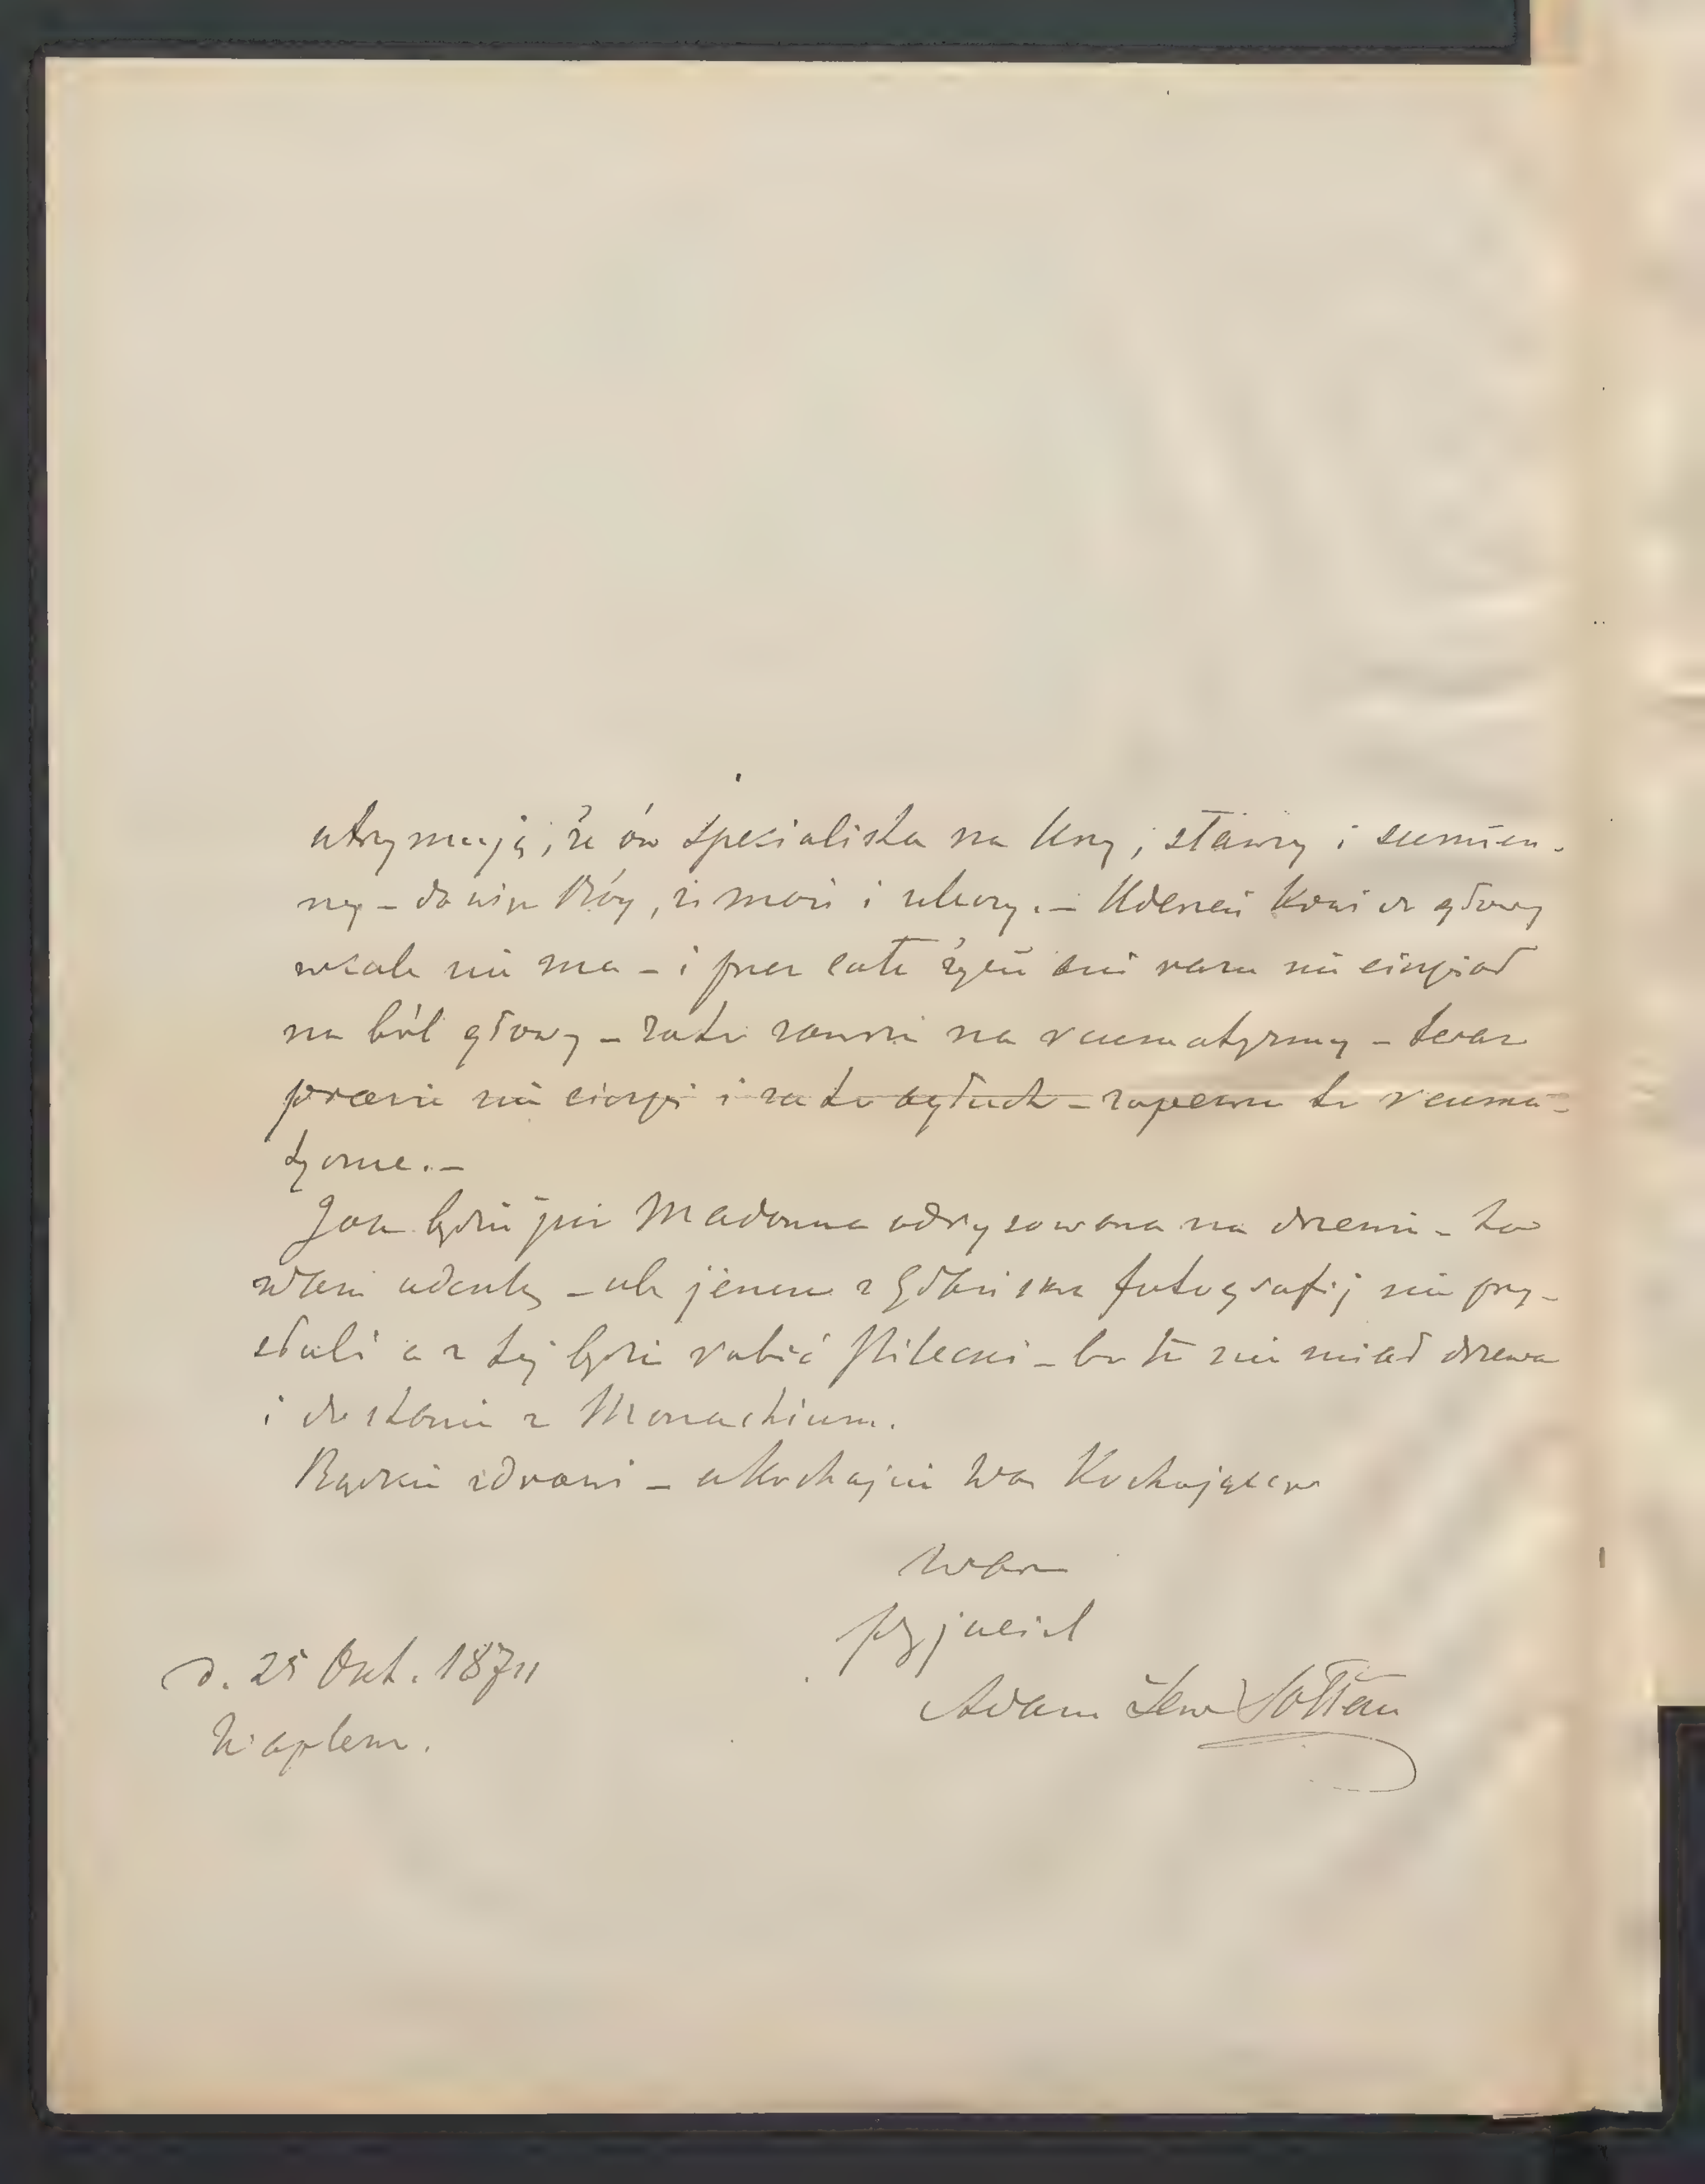 utrzymują, że ów specialista na uszy, sławny i sumien-
ny - da więc Bóg, że może i uleczy. - Uderzeń krwi do głowy
wcale nie ma - i przez całe życie ani razu nie cierpiał
na ból głowy - za to zawsze na reumatyzmy - teraz
prawie nie cierpi i za to ogłuchł - zapewne to reuma-
tyzme. -
Jak będzie już Madonna odrysowana na drzewie - to
wtem - ale jeszcze z Gdańska fotografij nie przy-
słali a z tej będzie robić Pilecki - bo tu nie miał drzewa
i dostanie z Monachium.
Bądźcie zdrowi - a kochajcie Was kochającego
Was
przyjaciel
Adam Lew Sołtan
d. 25 Okt. 1871
Neaplem.